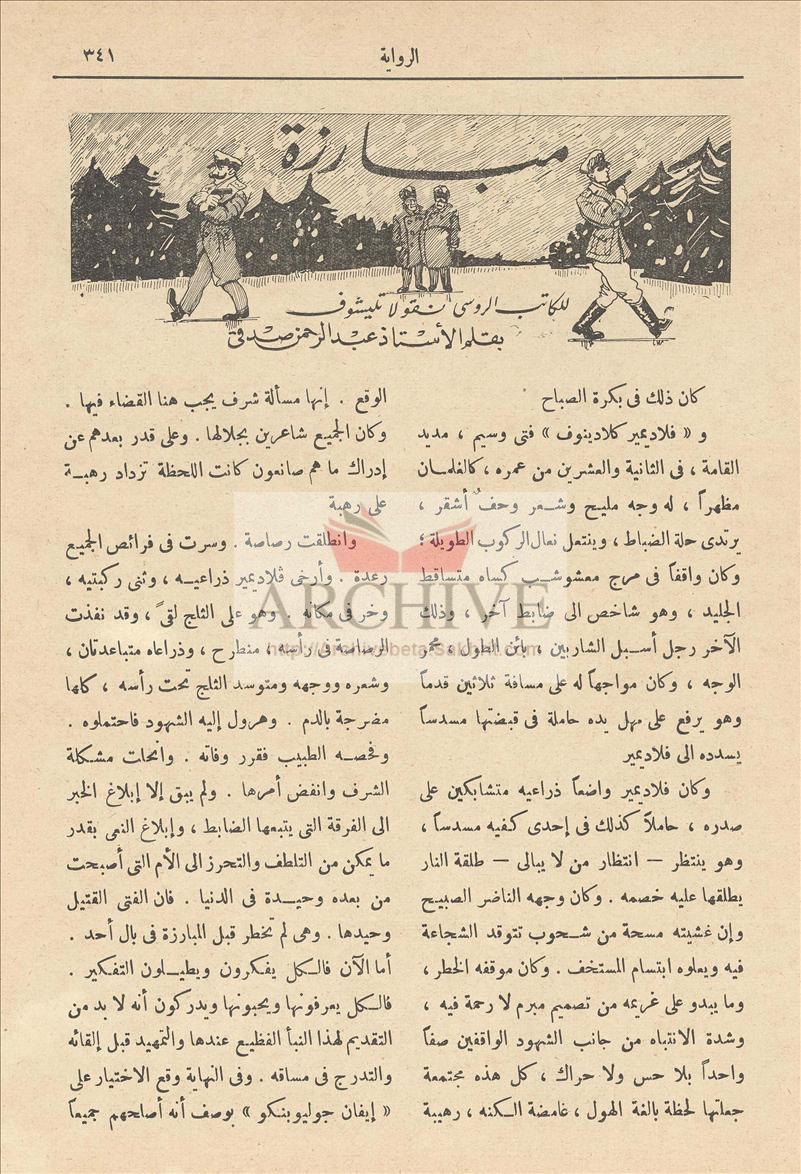 الرواية
٣٤١
مبارزة
للكاتب الروسى نقولا تليشوف
بقلم الأستاذ عبد الرحمن صدقى
كان ذلك فى بكرة الصباح
و « فلاديمير كلادينوف » فتى وسيم ، مديد
القامة ، فى الثانية والعشرين من عمره ، كالغلمان
مظهراً ، له وجه مليح وشعر وحف أشقر ،
يرتدى حلة الضباط ، وينتعل نعال الركوب الطويلة ؛
وكان واقفاً فى مرج معشوشب كساه متساقط
الجليد ، وهو شاخص الى ضابط آخر ، وذلك
الآخر رجل أسبل الشاربين ، بائن الطول ، محمر
الوجه ، وكان مواجهاً له على مسافة ثلاثين قدماً
وهو يرفع على مهل يده حاملة فى قبضتها مسدساً
يسدده الى فلاديمير
وكان فلاديمير واضعاً ذراعيه متشابكين على
صدره ، حاملاً كذلك فى إحدى كفيه مسدساً ،
وهو ينتظر — انتظار من لا يبالى — طلقة النار
يطلقها عليه خصمه . وكان وجهه الناضر الصبيح
وإن غشيته مسحة من شحوب تتوقد الشجاعة
فيه ويعلوه ابتسام المستخف . وكان موقفه الخطر ،
وما يبدو على غريمه من تصميم مبرم لا رحمة فيه ،
وشدة الانتباه من جانب الشهود الواقفين صفاً
واحداً بلا حس ولا حراك ، كل هذه مجتمعة
جعلتها لحظة بالغة الهول ، غامضة الكنه ، رهيبة
الوقع . إنها مسألة شرف يجب هنا القضاء فيها .
وكان الجميع شاعرين بجلالها . وعلى قدر بعدهم عن
إدراك ما هم صانعون كانت اللحظة تزداد رهبة
على رهبة
وانطلقت رصاصة . وسرت فى فرائص الجميع
رعدة . وأرخى ڤلاديمير ذراعيه ، وثنى ركبتيه ،
وخر فى مكانه . وهو على الثلج لقىً ، وقد نفذت
الرصاصة فى رأسه ، منطرح ، وذراعاه متباعدتان ،
وشعره ووجهه ومتوسد الثلج تحت رأسه ، كلها
مضرجة بالدم . وهرول إليه الشهود فاحتملوه .
وفحصه الطبيب فقرر وفاته . وانحلت مشكلة
الشرف وانفض أمرها . ولم يبق إلا إبلاغ الخبر
الى الفرقة التى يتبعها الضابط ، وإبلاغ النعى بقدر
ما يمكن من التلطف والتحرز الى الأم التى أصبحت
من بعده وحيدة فى الدنيا . فان الفتى القتيل
وحيدها . وهى لم تخطر قبل المبارزة فى بال أحد .
أما الآن فالكل يفكرون ويطيلون التفكير .
فالكل يعرفونها ويحبونها ويدركون أنه لا بد من
التقديم لهذا النبأ الفظيع عندها والتمهيد قبل إلقائه
والتدرج فى مساقه . وفى النهاية وقع الاختيار على
« إيفان جوليوبنكو » بوصف أنه أصلحهم جميعاً
ARCHIVE